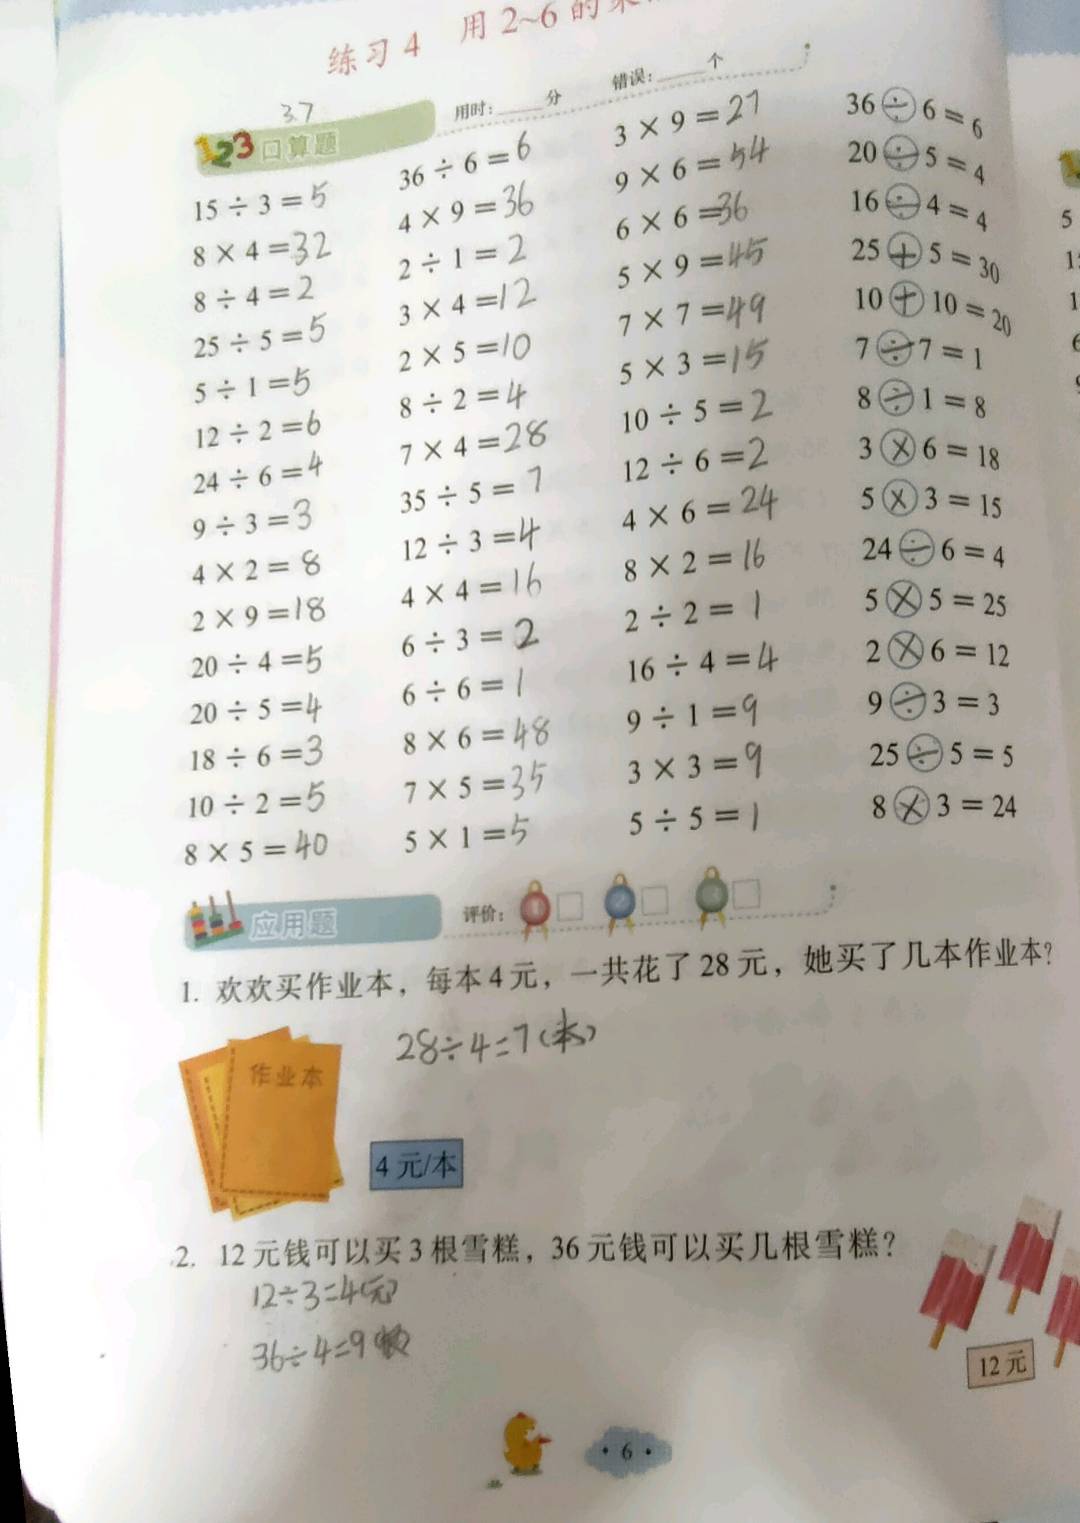 练习 4 用 2~6 的
37
123 口算题 用时：____分 错误：____个
15÷3=5
8×4=32
8÷4=2
25÷5=5
5÷1=5
12÷2=6
24÷6=4
9÷3=3
4×2=8
2×9=18
20÷4=5
20÷5=4
18÷6=3
10÷2=5
8×5=40
36÷6=6
4×9=36
2÷1=2
3×4=12
2×5=10
8÷2=4
7×4=28
35÷5=7
12÷3=4
4×4=16
6÷3=2
6÷6=1
8×6=48
7×5=35
5×1=5
3×9=27
9×6=54
6×6=36
5×9=45
7×7=49
5×3=15
10÷5=2
12÷6=2
4×6=24
8×2=16
2÷2=1
16÷4=4
9÷1=9
3×3=9
5÷5=1
36÷6=6
20÷5=4
16÷4=4
25+5=30
10+10=20
7÷7=1
8÷1=8
3×6=18
5×3=15
24÷6=4
5×5=25
2×6=12
9÷3=3
25÷5=5
8×3=24
应用题 评价： 1 □ 2 □ 3 □
1. 欢欢买作业本，每本4元，一共花了28元，她买了几本作业本?
28÷4=7(本)
作业本
4元/本
2. 12元钱可以买3根雪糕，36元钱可以买几根雪糕?
12÷3=4(元)
36÷4=9
12元
·6·